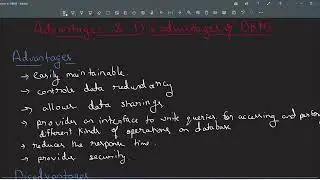 Advantages & Disadvantages of DBMS
Advantages
→ easily maintainable.
→ controls data redundancy
→ allows data sharings.
→ provides an interface to write queries for accessing and
different kinds of operations on database
→ reduces the response time.
→ provides security.
Disadvantages